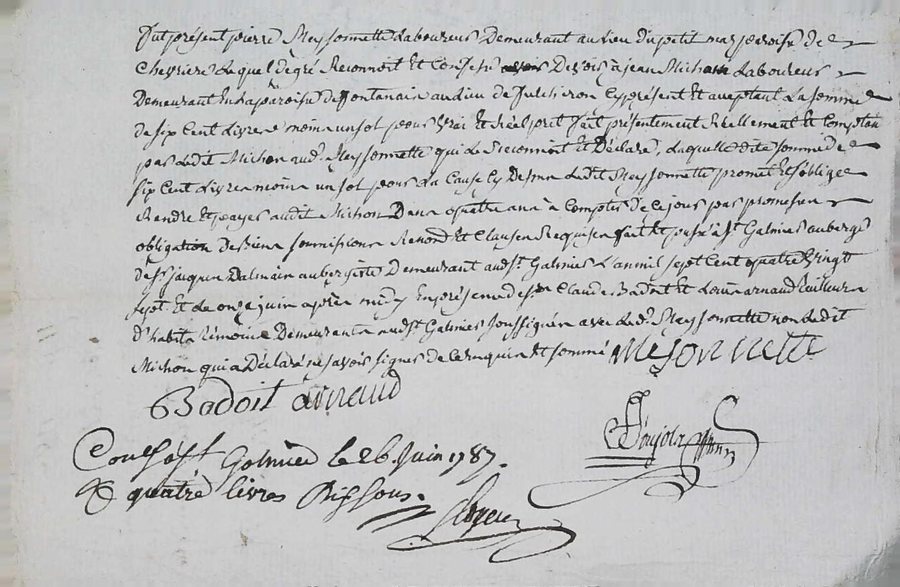 Fut présent pierre Meysonnette Laboureur Demeurant au lieu du petit mas paroisse de
Chevriere Lequel degré Reconnoit Et Confesse devoir à jean Michon Laboureur
Demeurant En La paroisse de fontanais au lieu de Cy présent Et acceptant La somme
de six Cent Livres moins un sol pour vrai Et Réel pret fait présentement Réellement Et Comptan
par Ledit Michon aud. Meysonnette qui Le Reconnoit Et Déclare, Laquelle dite somme de
six Cent Livres moins un sol pour La Cause Cy Dessus Ledit Meysonnette promet Et s'oblige
Rendre Et payer audit Michon Dans quatre ans à Compter de Ce jour par promesses
obligation De Biens soumissions Renond Et Clauses Requises fait Et passé à St. Galmier auberge
de Sr. jacques Dalmain aubergiste Demeurant aud. St. Galmier L'an mil sept Cent quatre Vingt
sept Et Le onze juin après midy En présence de Srs. Claude Badoit Et Louis arnaud tailleurs
D'habits témoins Demeurants aud. St. Galmier soussignés avec Led. Meysonnette non Ledit
Michon qui a Déclaré ne savoir signer de Ce enquis Et sommé mejonnette
Badoit arnaud
Conlé à St Galmier le 26 Juin 1787.
R quatre livres Dix sous.